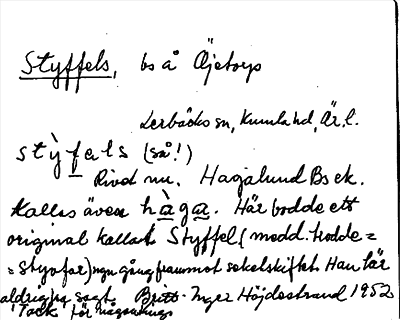 Styffels, bs å Äjetorp
Lerbäcks sn, Kumla hd, Är. l.
stỳfəls (så!)
Rivet nu. Hagalund Bs ek.
Kallas även hàga. Här bodde ett
original kallat Styffel (medd. trodde =
= Styvfar) ngn gång framåt sekelskiftet. Han lär
aldrig sagt.
"Tack för
Britt-Inger Höjdestrand 1952